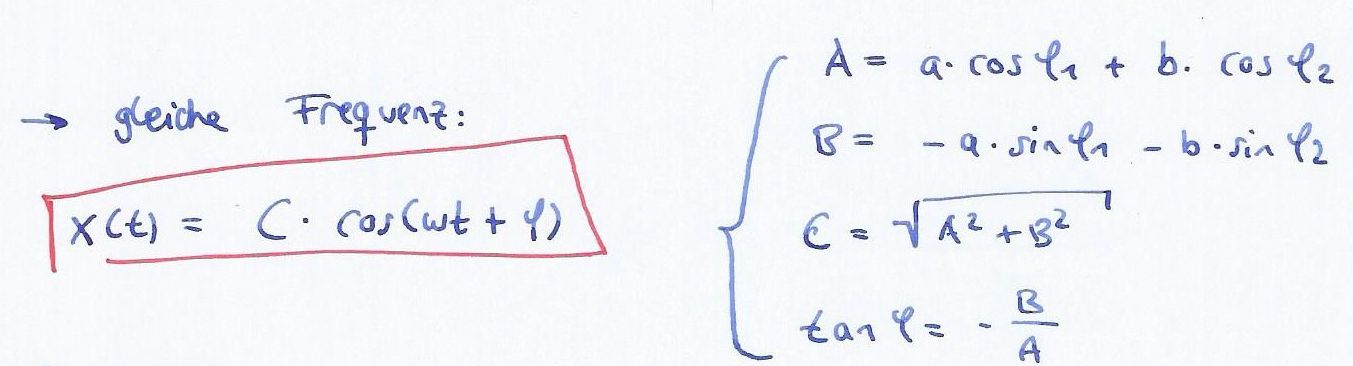 → gleiche Frequenz:
x(t) = C · cos(ωt + φ)
A = a · cos φ₁ + b · cos φ₂
B = - a · sin φ₁ - b · sin φ₂
C = √(A² + B²)
tan φ = - B/A